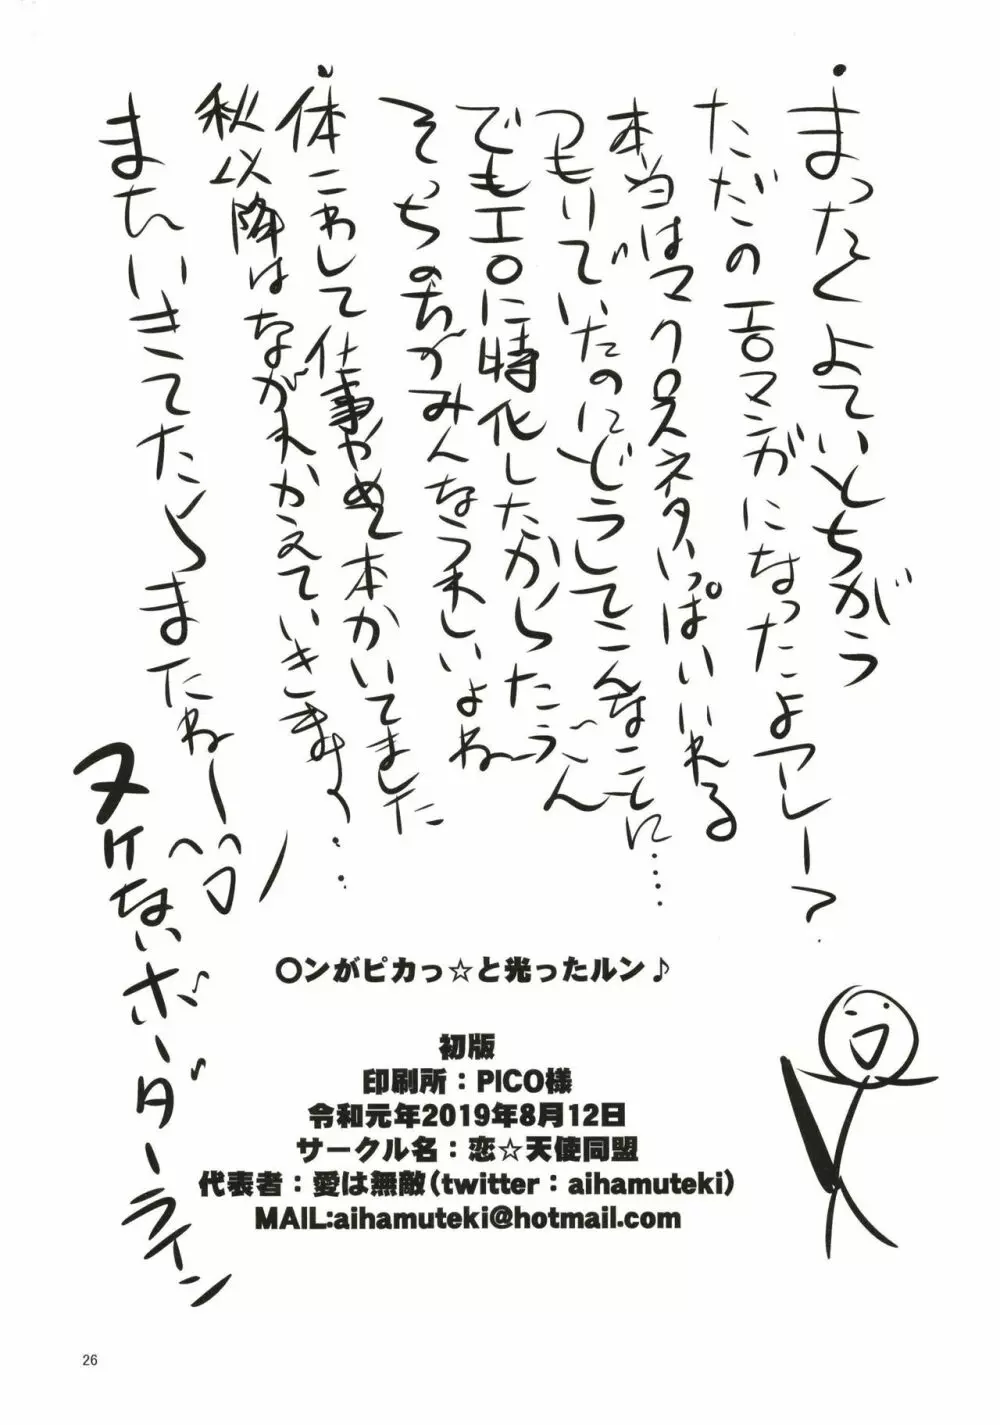 ・まったくよていとちがう
ただのエロマンガになったよアレー?
本当はマクロスネタいっぱいいれる
つもりでいたのにどうしてこんなことに……
でもエロに特化したからたぶん
そっちのちがみんなうれしいよねー
・体こわして仕事やめて本かいてました
秋以降はながれかえていきます…
またいきてたらまたねー
ヌケないボーダーライン
〇ンがピカっ☆と光ったルン♪
初版
印刷所：PICO様
令和元年2019年8月12日
サークル名：恋☆天使同盟
代表者：愛は無敵(twitter：aihamuteki)
MAIL:aihamuteki@hotmail.com
26